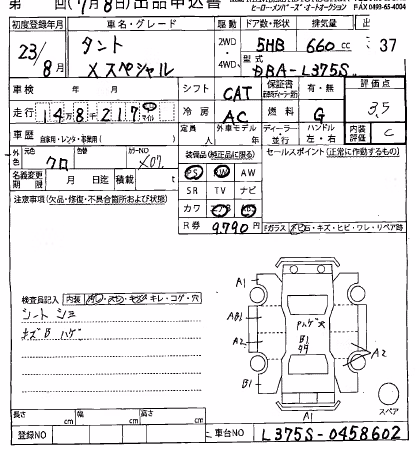 第 回(7月8日)出品申込書
ヒーローメンバーズ・オートオークション FAX 0493-65-4004
初度登録年月 車名・グレード 駆動 ドア数・形状 排気量 出 37
23/8月 タント Xスペシャル 2WD・4WD 5HB 660cc
型式 DBA-L375S
車検 年 月 シフト CAT 保証書 有・無 評価点 3.5
走行 14万8千217 マイル 冷房 AC 燃料 G
車歴 自家用・レンタ・事業用( ) 定員 人 外車モデル 年 ディーラー・並行 ハンドル 左・右 内装評価 C
外色 元色 クロ 色替 カラーNO X07 装備品(純正品に限る) セールスポイント(正常に作動するもの)
名義変更期限 月 日迄 積載 t
PS PW AW
SR TV ナビ
カワ エアB ABS
注意事項(欠品・修復・不具合箇所および状態)
R券 9,790円
Fガラス 飛石・キズ・ヒビ・ワレ・リペア跡
検査員記入 内装 キレ・コゲ・穴
シート シミ
キズB ハゲ
A1
AB1
A2
B1
Pハゲ大
B1
A2
A1
スペア
長さ cm 幅 cm 高さ cm
登録NO 車台NO L375S-0458602